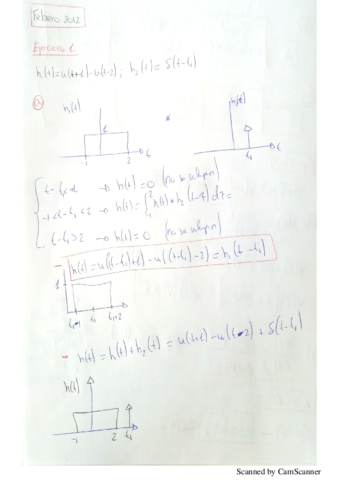 Febrero 2012
Ejercicio 1
h₁(t)=u(t+1)-u(t-2); h₂(t)= δ(t-t₁)
a)
h₁(t)
h₂(t)
1
-1 2 t
t₁
t-t₁<-1 → h(t)=0 (no se solapan)
-1<t-t₁<2 → h(t)=
t-t₁>2 → h(t)=0 (no se solapan)
h(t)= u((t-t₁)+1)-u((t-t₁)-2)=h₁(t-t₁)
1
t₁-1 t₁ t₁+2
- h(t)= h₁(t)+h₂(t)= u(t+1)-u(t-2)+δ(t-t₁)
h(t)
-1 2 t₁
Scanned by CamScanner